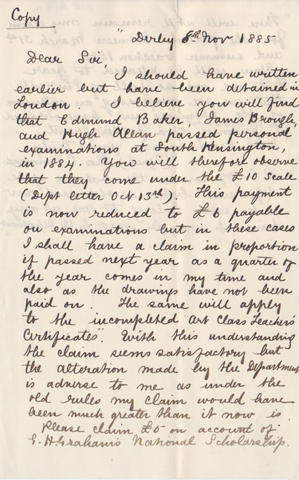 Copy
"Derby 8th Nov 1885
Dear Sir,
I should have written
earlier but have been detained in
London. I believe you will find
that Edmund Baker, James Brough,
and Hugh Allan passed personal
examinations at South Kensington,
in 1884. You will therefore observe
that they come under the £10 Scale
(Dept letter Oct 13th). This payment
is now reduced to £6 payable
on examinations but in these cases
I shall have a claim in proportion
if passed next year as a quarter of
the year comes in my time and
also as the drawings have not been
paid on. The same will apply
to the incompleted Art Class Teachers
Certificates". With this understanding
the claim seems satisfactory but
the alteration made by the Department
is adverse to me as under the
old rules my claim would have
been much greater than it now is.
Please claim £5 on account of
G. H. Graham's National Scholarship.